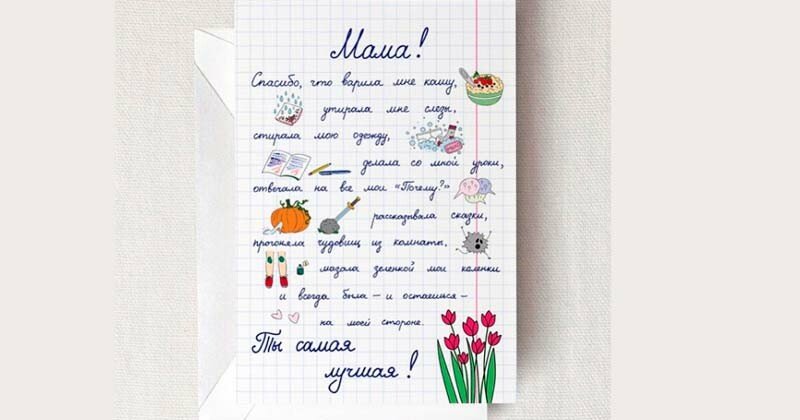 Мама!
Спасибо, что варила мне кашу,
утирала мне слезы,
стирала мою одежду,
делала со мной уроки,
отвечала на все мои «Почему?»
рассказывала сказки,
прогоняла чудовищ из комнаты,
мазала зеленкой мои коленки
и всегда была – и остаешься –
на моей стороне.
Ты самая
лучшая!